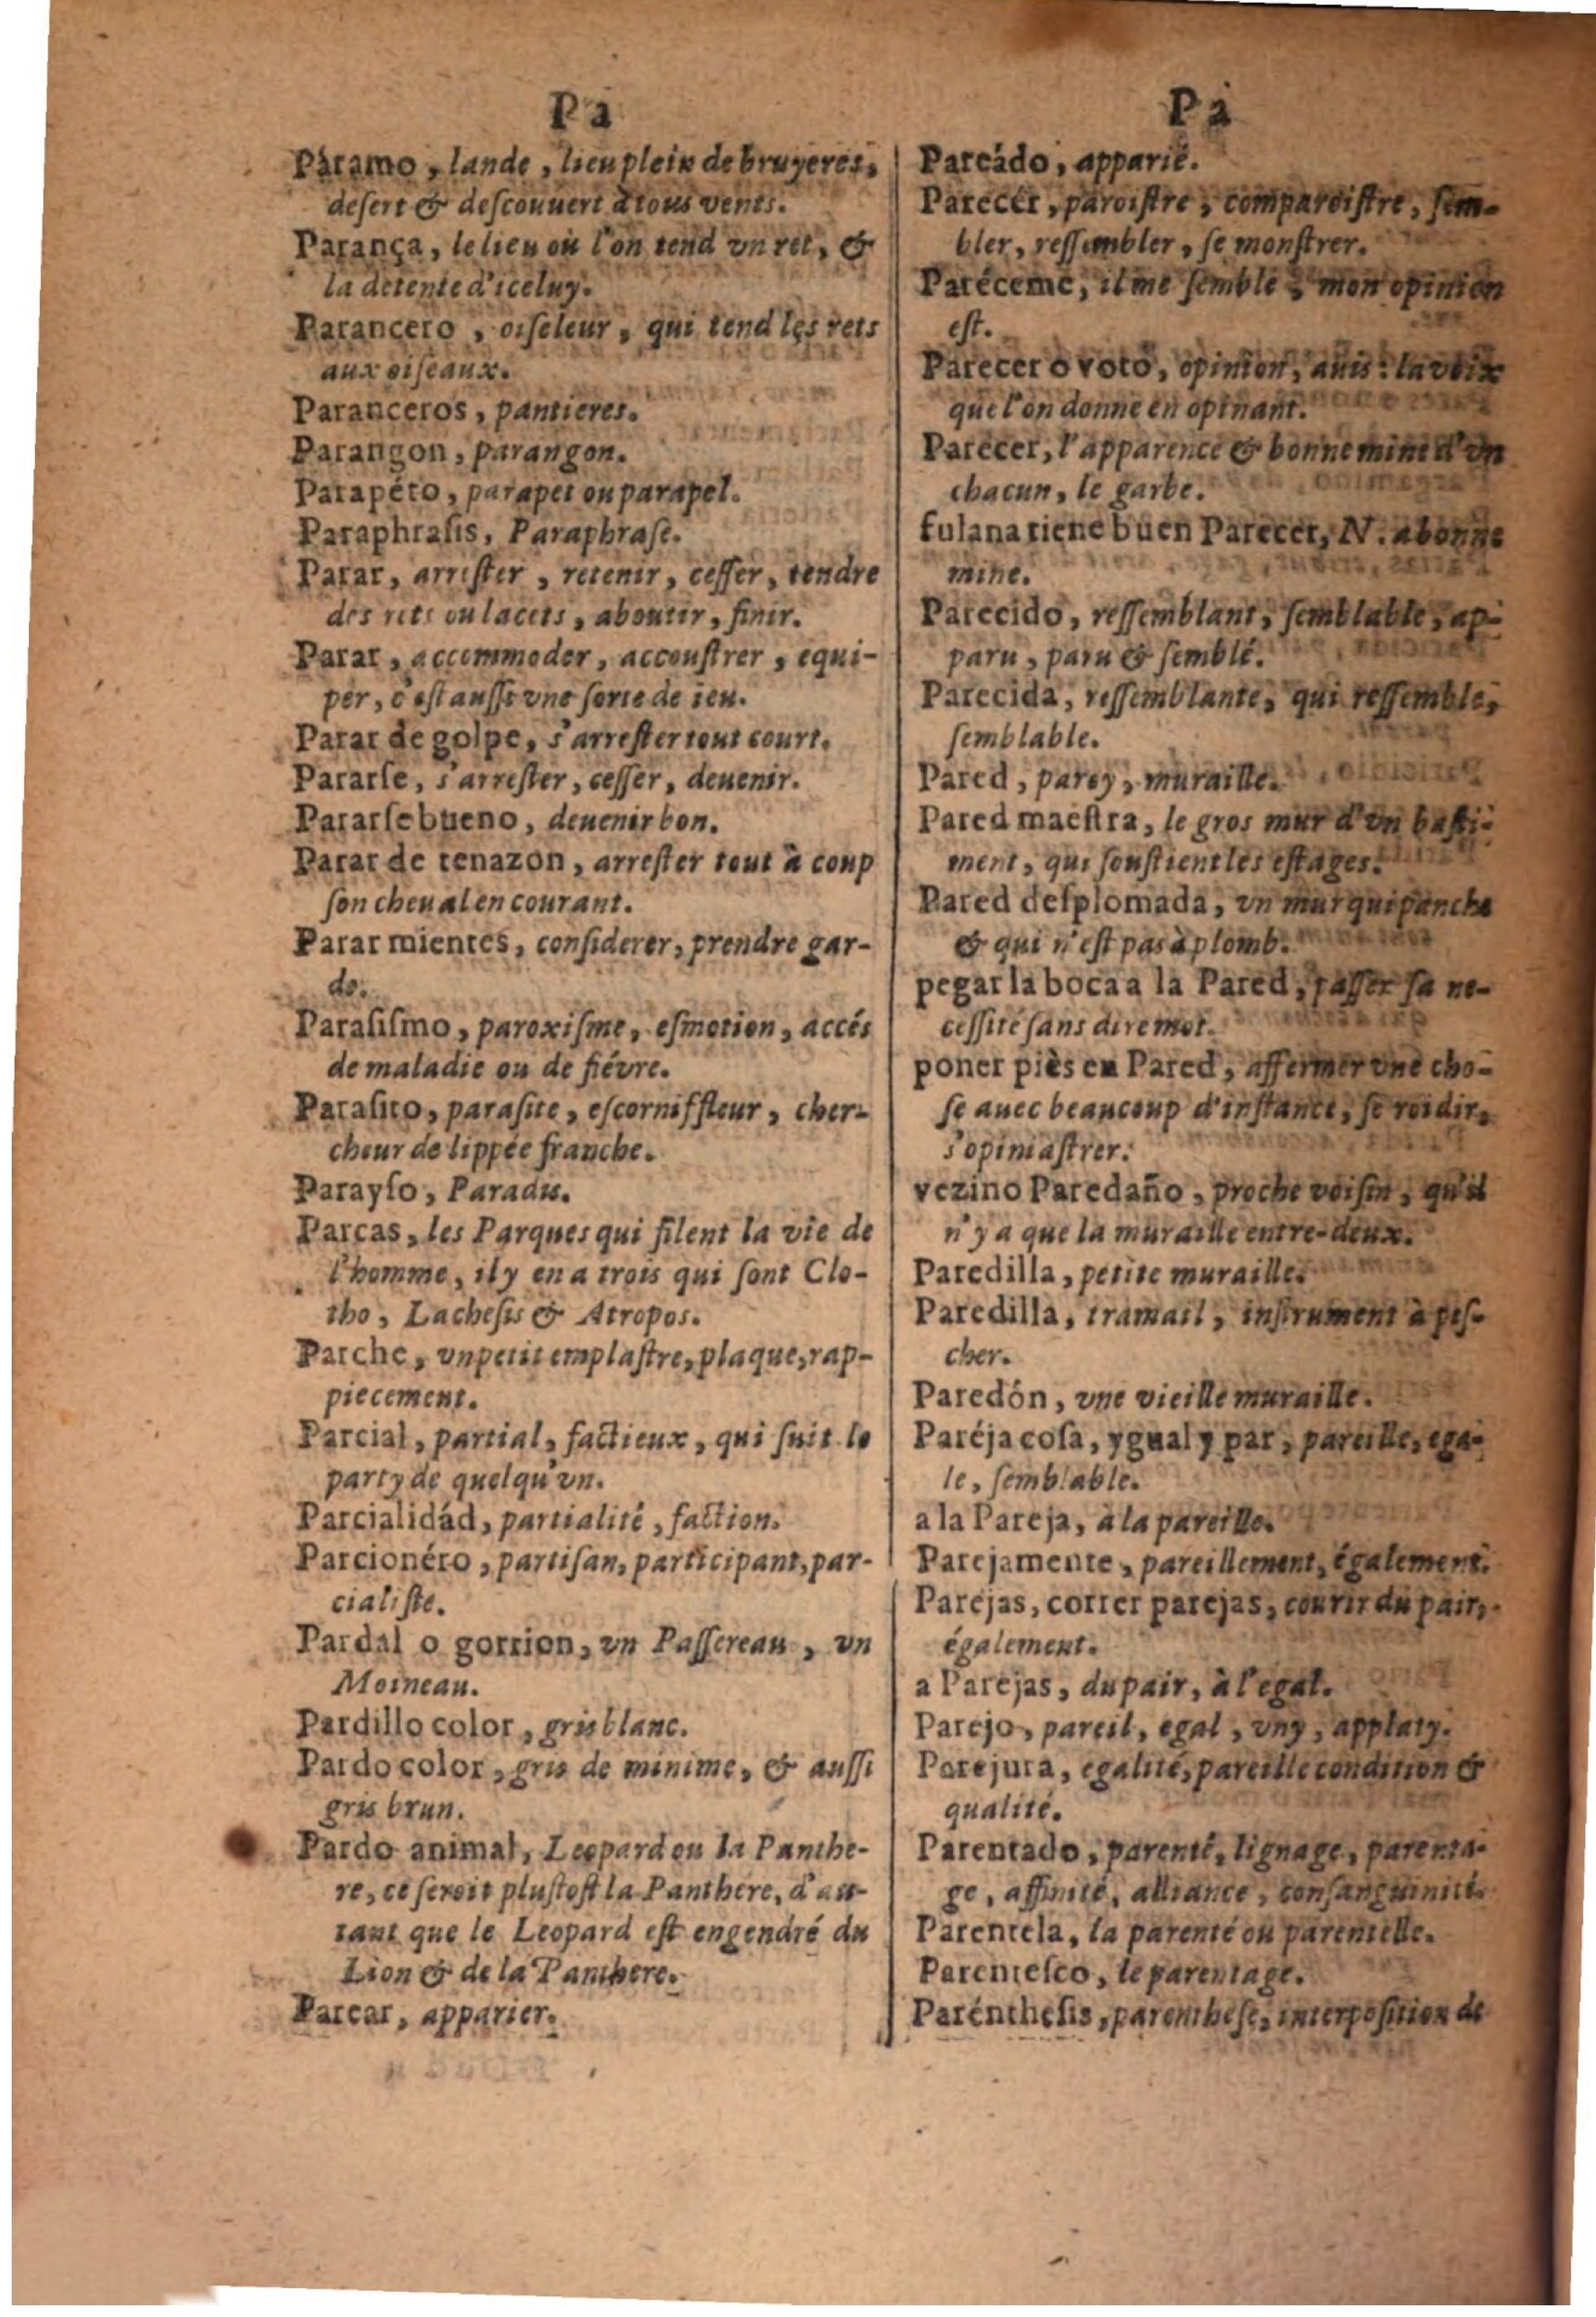 Pa
Páramo, lande, lieu plein de bruyeres,
deſert & deſcouuert à tous vents.
Parança, le lieu où l'on tend vn ret, &
la detente d'iceluy.
Parancero, oiſeleur, qui tend les rets
aux oiſeaux.
Paranceros, pantieres.
Parangon, parangon.
Parapéto, parapet ou parapel.
Paraphraſis, Paraphraſe.
Parar, arreſter, retenir, ceſſer, tendre
des rets ou lacets, aboutir, finir.
Parar, accommoder, accouſtrer, equi-
per, c'eſt auſſi vne ſorte de ieu.
Parar de golpe, s'arreſter tout court.
Pararſe, s'arreſter, ceſſer, deuenir.
Pararſe bueno, deuenir bon.
Parar de tenazon, arreſter tout à coup
ſon cheual en courant.
Parar mientes, conſiderer, prendre gar-
de.
Paraſiſmo, paroxiſme, eſmotion, accés
de maladie ou de fiévre.
Paraſito, paraſite, eſcorniffleur, cher-
cheur de lippée franche.
Parayſo, Paradis.
Parcas, les Parques qui filent la vie de
l'homme, il y en a trois qui ſont Clo-
tho, Lacheſis & Atropos.
Parche, vn petit emplaſtre, plaque, rap-
piecement.
Parcial, partial, factieux, qui ſuit le
party de quelqu'vn.
Parcialidád, partialité, faction.
Parcionéro, partiſan, participant, par-
cialiſte.
Pardal o gorrion, vn Paſſereau, vn
Moineau.
Pardillo color, gris blanc.
Pardo color, gris de minime, & auſſi
gris brun.
Pardo animal, Leopard ou la Panthe-
re, ce ſeroit pluſtoſt la Panthere, d'au-
tant que le Leopard eſt engendré du
Lion & de la Panthere.
Parear, apparier.
Pa
Pareádo, apparié.
Parecér, paroiſtre, comparoiſtre, ſem-
bler, reſſembler, ſe monſtrer.
Paréceme, il me ſemble, mon opinion
eſt.
Parecer o voto, opinion, auis: la voix
que l'on donne en opinant.
Parecer, l'apparence & bonne mine d'vn
chacun, le garbe.
fulana tiene buen Parecer, N. a bonne
mine.
Parecido, reſſemblant, ſemblable, ap-
paru, paru & ſemblé.
Parecida, reſſemblante, qui reſſemble,
ſemblable.
Pared, paroy, muraille.
Pared maeſtra, le gros mur d'vn baſti-
ment, qui ſouſtient les eſtages.
Pared deſplomada, vn mur qui panche
& qui n'eſt pas à plomb.
pegar la boca a la Pared, paſſer ſa ne-
ceſſité ſans dire mot.
poner piès en Pared, affermer vne cho-
ſe auec beaucoup d'inſtance, ſe roidir,
s'opiniaſtrer.
vezino Paredaño, proche voiſin, qu'il
n'y a que la muraille entre-deux.
Paredilla, petite muraille.
Paredilla, tramail, inſtrument à peſ-
cher.
Paredón, vne vieille muraille.
Paréja coſa, ygual y par, pareille, ega-
le, ſemblable.
a la Pareja, à la pareille.
Parejamente, pareillement, également.
Parejas, correr parejas, courir du pair,
également.
a Parejas, du pair, à l'egal.
Parejo, pareil, egal, vny, applaty.
Parejura, egalité, pareille condition &
qualité.
Parentado, parenté, lignage, parenta-
ge, affinité, alliance, conſanguinité.
Parentela, la parenté ou parentelle.
Parenteſco, le parentage.
Parénthesis, parentheſe, interpoſition de